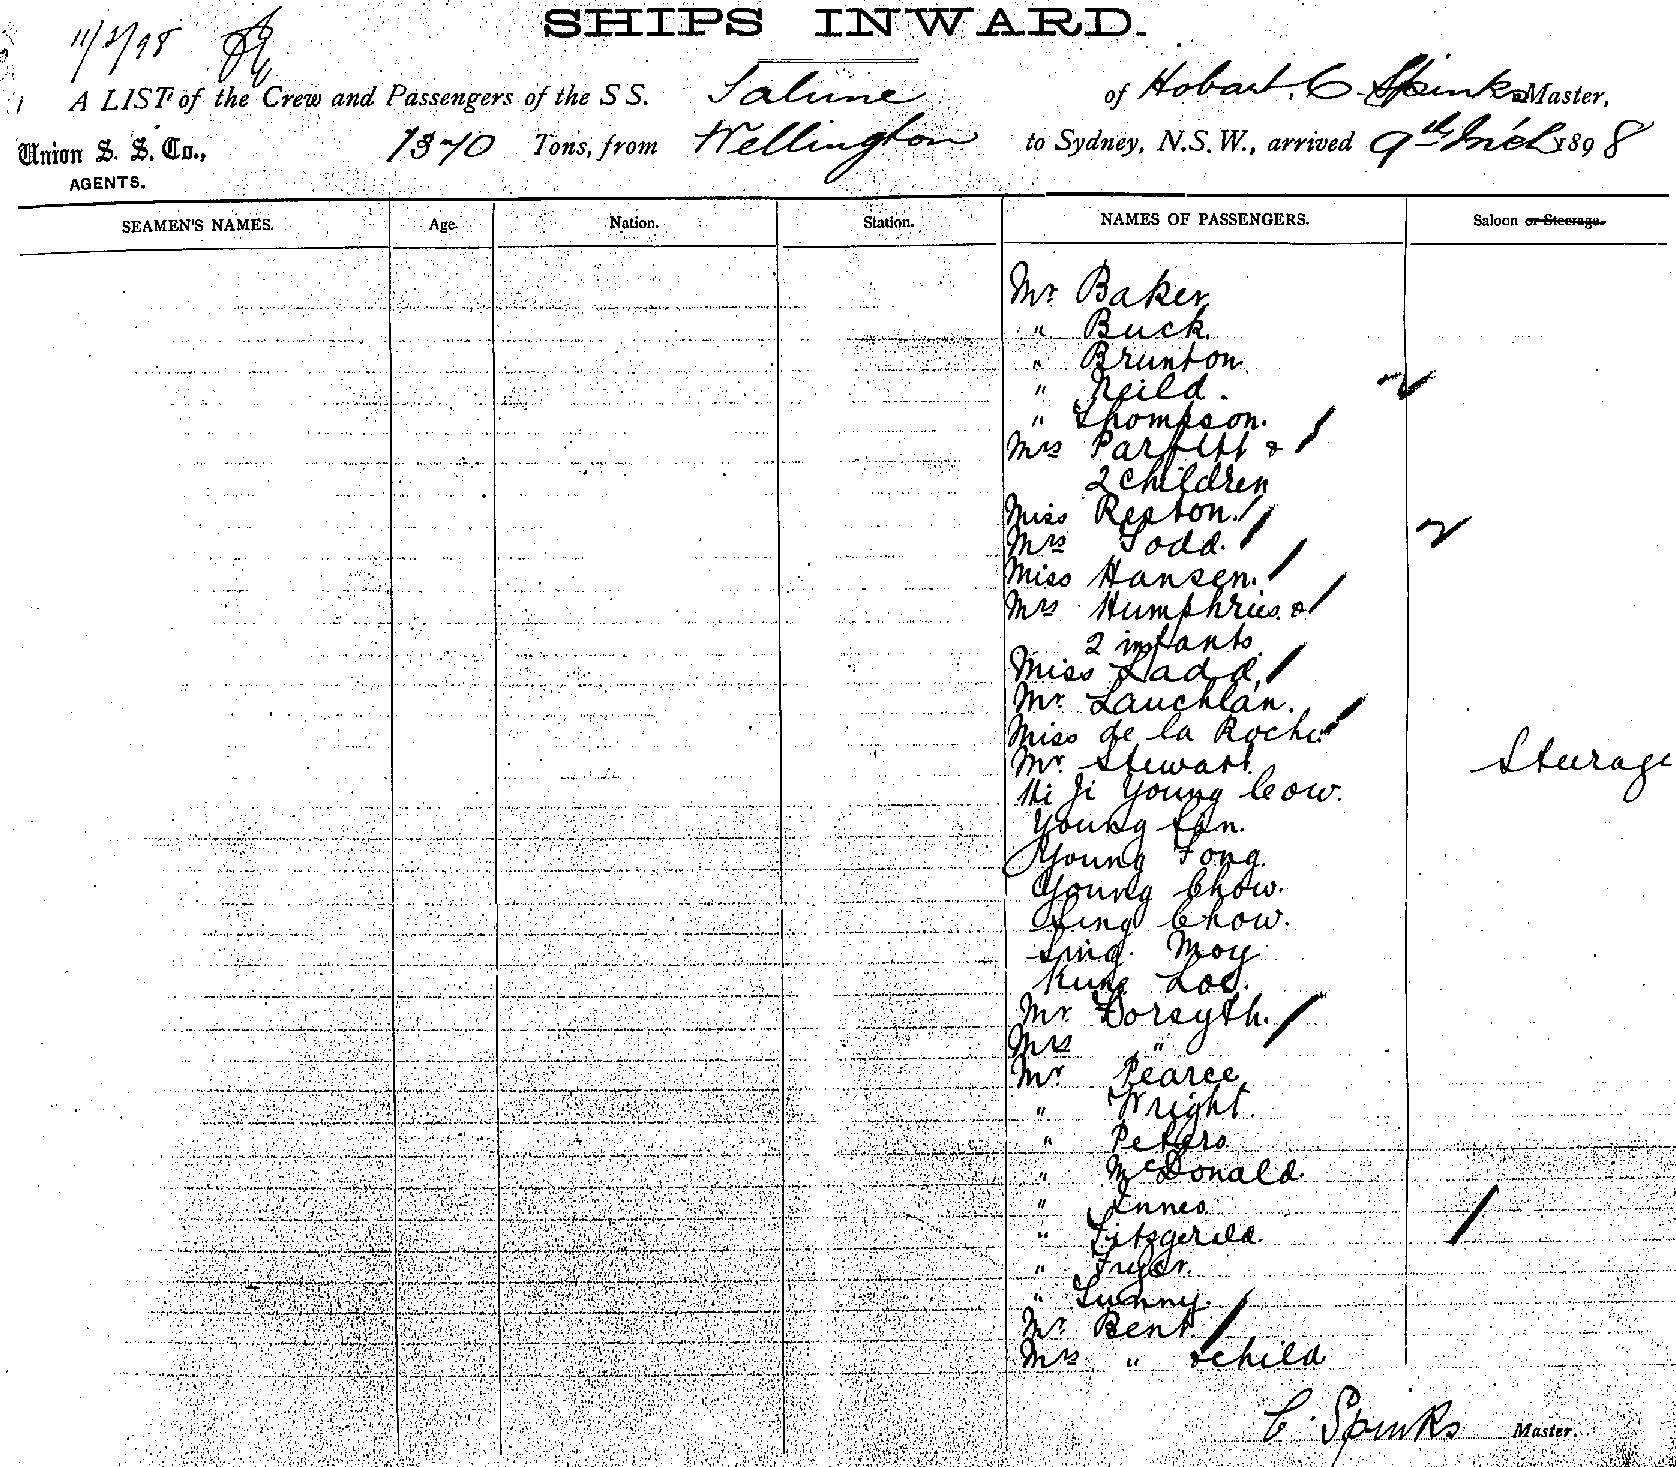 SHIPS INWARD.
11/3/98
A LIST of the Crew and Passengers of the S S. Talune of Hobart, C. Spinks Master,
Union S. S. Co., 1370 Tons, from Wellington to Sydney, N.S.W., arrived 9th Mch 1898
AGENTS.
SEAMEN'S NAMES. Age. Nation. Station. NAMES OF PASSENGERS. Saloon or Steerage.
Mr Baker
" Buck.
" Brunton
" Neild.
" Thompson.
Mrs Parfitt &
2 children
Miss Repton.
Mrs Todd.
Miss Hansen.
Mrs Humphries &
2 infants
Miss Ladd,
Mr Lauchlan.
Miss de la Roche
Mr Stewart Steerage
Hi Ji Young Cow.
Young
Young Fong.
Young Chow.
Chow.
Sing Moy
Kung Loo.
Mr Forsyth.
Mrs "
Mr Pearce
" Wright.
" Peters
" McDonald.
" Innes
" Fitzgerald.
" Fryer.
" Lunny.
Mr Bent
Mrs " & child
C. Spinks Master.